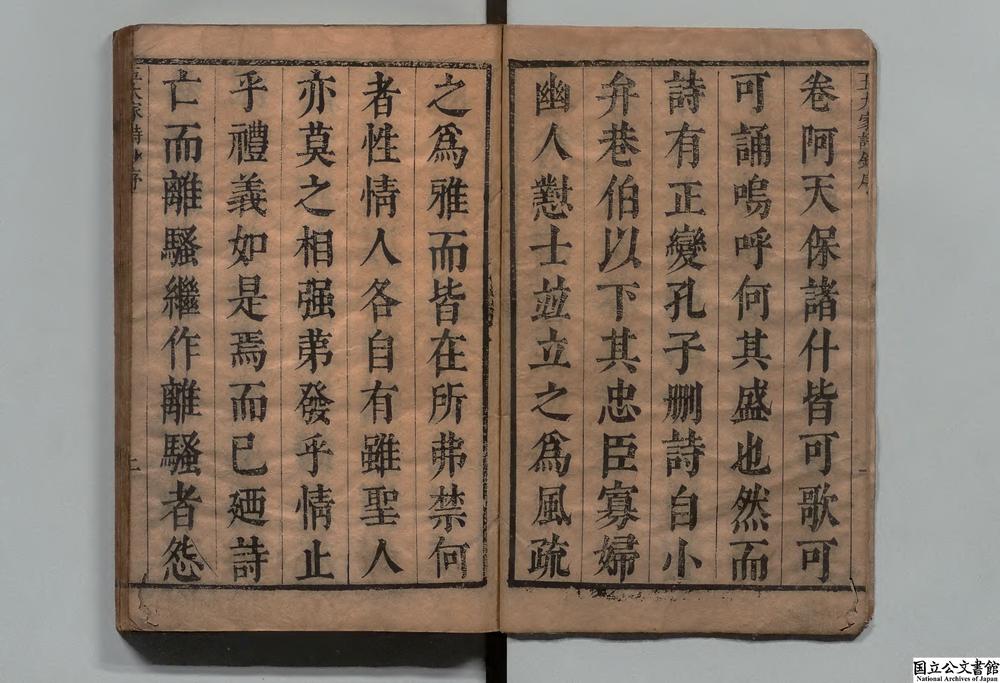 卷阿天保諸什皆可歌可
可誦嗚呼何其盛也然而
詩有正變孔子刪詩自小
弁巷伯以下其忠臣寡婦
幽人懟士並立之為風疏
之為雅而皆在所弗禁何
者性情人各自有雖聖人
亦莫之相强苐發乎情止
乎禮義如是焉而已廼詩
亡而離騷繼作離騷者怨
国立公文書館
National Archives of Japan